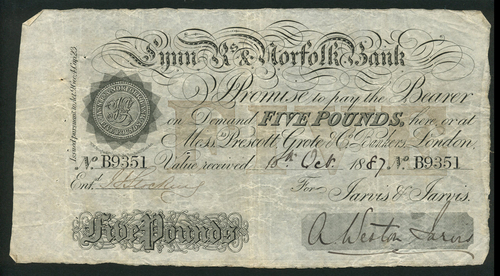 Lynn Rs & Norfolk Bank
I Promise to pay the Bearer
on Demand FIVE POUNDS, here or at
Messrs Prescott, Grote & Co. Bankers, London,
Value received. 10th Oct. 1887.
No B9351 No B9351
Entd. For Jarvis & Jarvis.
Five Pounds A. Weston Jarvis